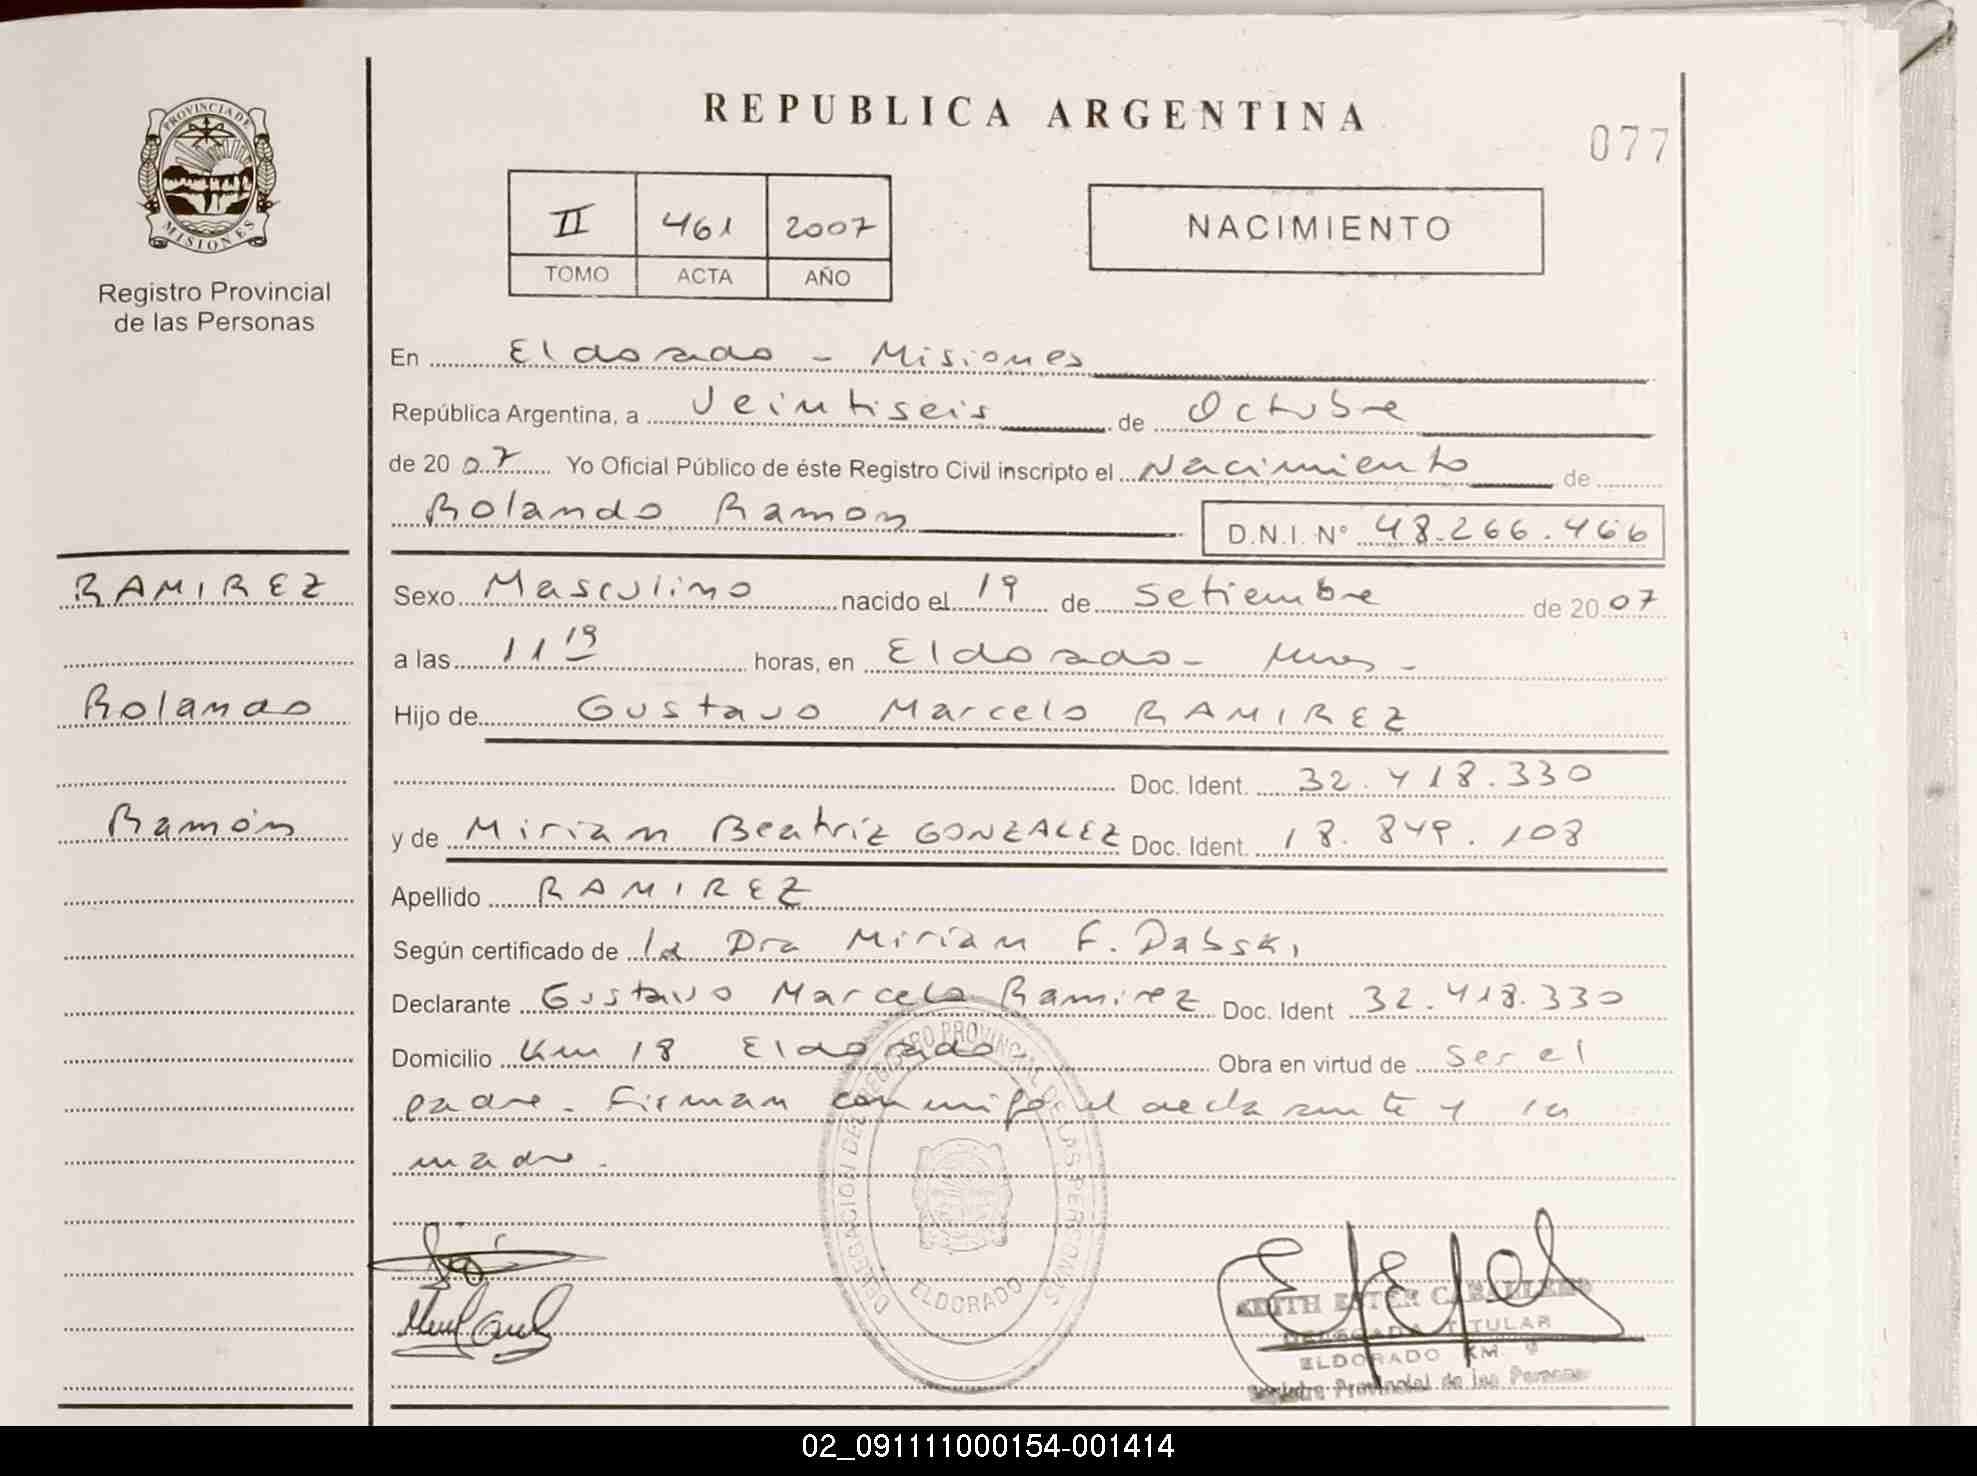 REPUBLICA ARGENTINA
077
PROVINCIA DE
MISIONES
Registro Provincial
de las Personas
II 461 2007
TOMO ACTA AÑO
NACIMIENTO
En Eldorado - Misiones
República Argentina, a Veintiseis de Octubre
de 2007 Yo Oficial Público de éste Registro Civil inscripto el Nacimiento de
Rolando Ramon D.N.I. N° 48.266.466
RAMIREZ
Rolando
Ramón
Sexo Masculino nacido el 19 de Setiembre de 2007
a las 11 19 horas, en Eldorado - Mnes -
Hijo de Gustavo Marcelo RAMIREZ
Doc. Ident. 32.418.330
y de Miriam Beatriz GONZALEZ Doc. Ident. 18.849.108
Apellido RAMIREZ
Según certificado de la Dra Miriam F. Dabski
Declarante Gustavo Marcelo Ramirez Doc. Ident 32.418.330
Domicilio Km 18 Eldorado. Obra en virtud de ser el
padre - Firman conmigo el declarante y la
madre -
DELEGACION DEL REGISTRO PROVINCIAL DE LAS PERSONAS
ELDORADO
EDITH ESTER CABALLERO
DELEGADA TITULAR
ELDORADO KM 9
Registro Provincial de las Personas
02_091111000154-001414